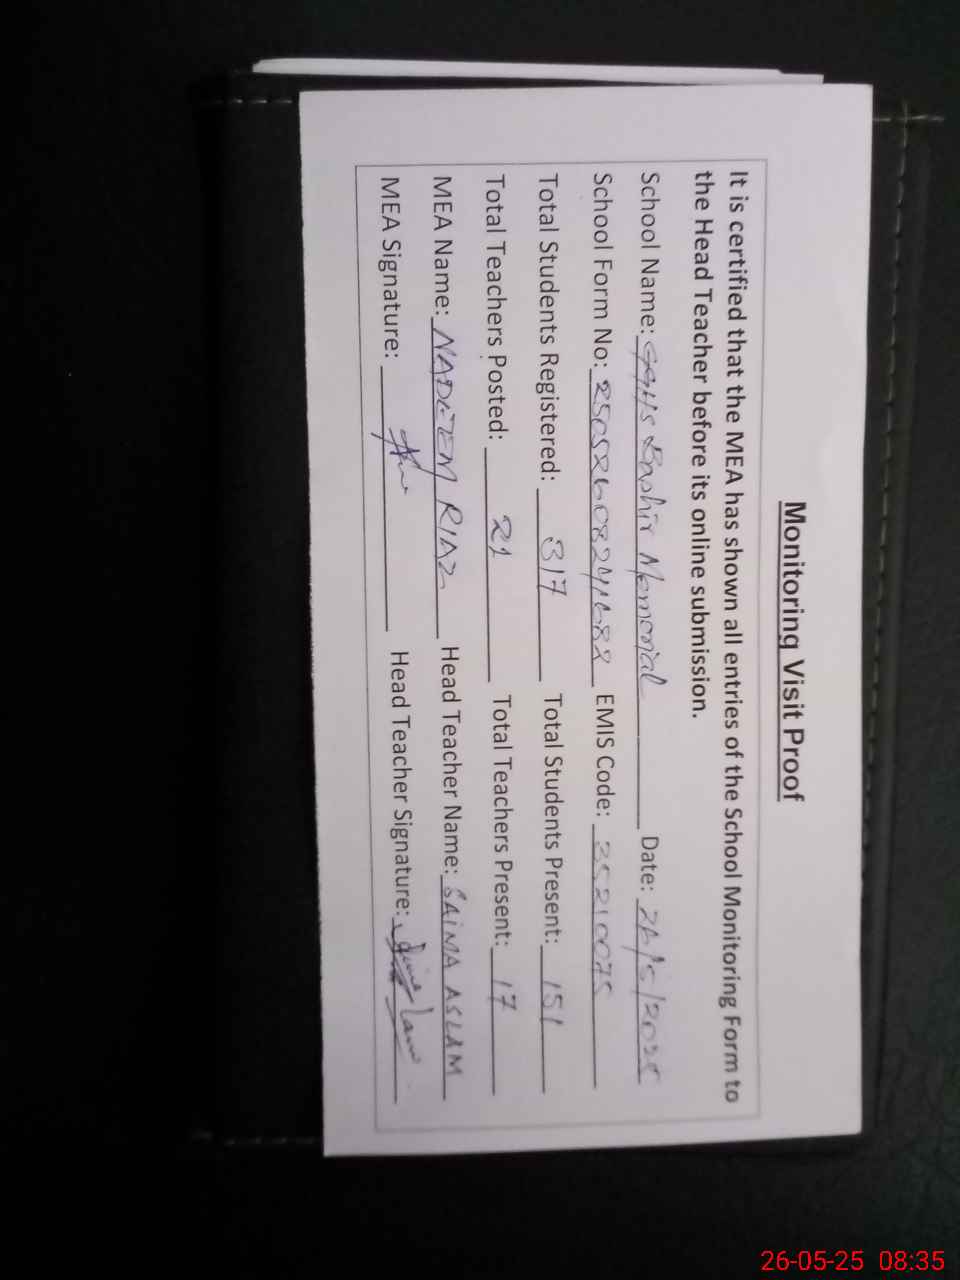 Monitoring Visit Proof
It is certified that the MEA has shown all entries of the School Monitoring Form to
the Head Teacher before its online submission.
School Name: GGHS Bashir Memorial Date: 26/5/2025
School Form No: 25052608241682 EMIS Code: 35210075
Total Students Registered: 317 Total Students Present: 151
Total Teachers Posted: 21 Total Teachers Present: 17
MEA Name: NADEEM RIAZ Head Teacher Name: SAIMA ASLAM
MEA Signature: Head Teacher Signature:
26-05-25 08:35